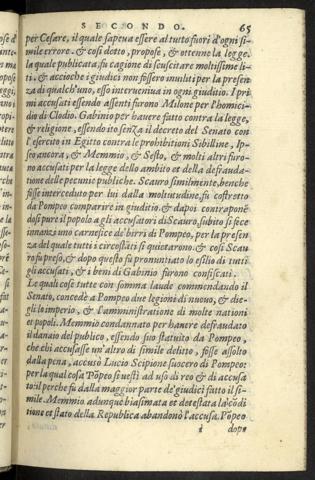 SECONDO. 65
per Cesare, il quale sapeua essere al tutto fuori d'ogni si-
mile errore. & cosi detto, propose, & ottenne la legge.
la quale publicata, fu cagione di suscitare moltissime li-
ti. & accioche i giudici non fossero inuiliti per la presen
za di qualch'uno, esso interueniua in ogni giuditio. I pri
mi accusati essendo assenti furono Milone per l'homici-
dio di Clodio. Gabinio per hauere fatto contra la legge,
& religione, essendo ito senza il decreto del Senato con
l'esercito in Egitto contra le prohibitioni Sibilline, Ip-
seo ancora, & Memmio, & Sesto, & molti altri furo-
no accusati per la legge dello ambito et della defrauda-
tione delle pecunie publiche. Scauro similmente, benche
fosse interceduto per lui dalla moltitudine, fu costretto
da Pompeo comparire in giuditio. & dapoi contraponē
dosi pure il popolo a gli accusatori di Scauro, subito si fece
innanzi uno carnefice de' birri di Pompeo, per la presen
za del quale tutti i circostāti si quietarono. & cosi Scau
ro fu preso, & dopo questo fu pronuntiato lo esilio di tutti
gli accusati, & i beni di Gabinio furono confiscati.
Le quali cose tutte con somma laude commendando il
Senato, concede a Pompeo due legioni di nuouo, & die-
gli lo imperio, & l'amministratione di molte nationi
et popoli. Memmio condannato per hauere defraudato
il danaio del publico, essendo suo statuito da Pompeo,
che chi accusasse un'altro di simile delitto, fosse assolto
dalla pena, accusò Lucio Scipione suocero di Pompeo:
per la qual cosa Pōpeo si uestì ad uso di reo & di accusa
to: il perche fu dalla maggior parte de'giudici fatto il si-
mile. Memmio adunque biasimata et detestata la cōdi
tione et stato della Republica abandonò l'accusa. Pōpeo
i dopo